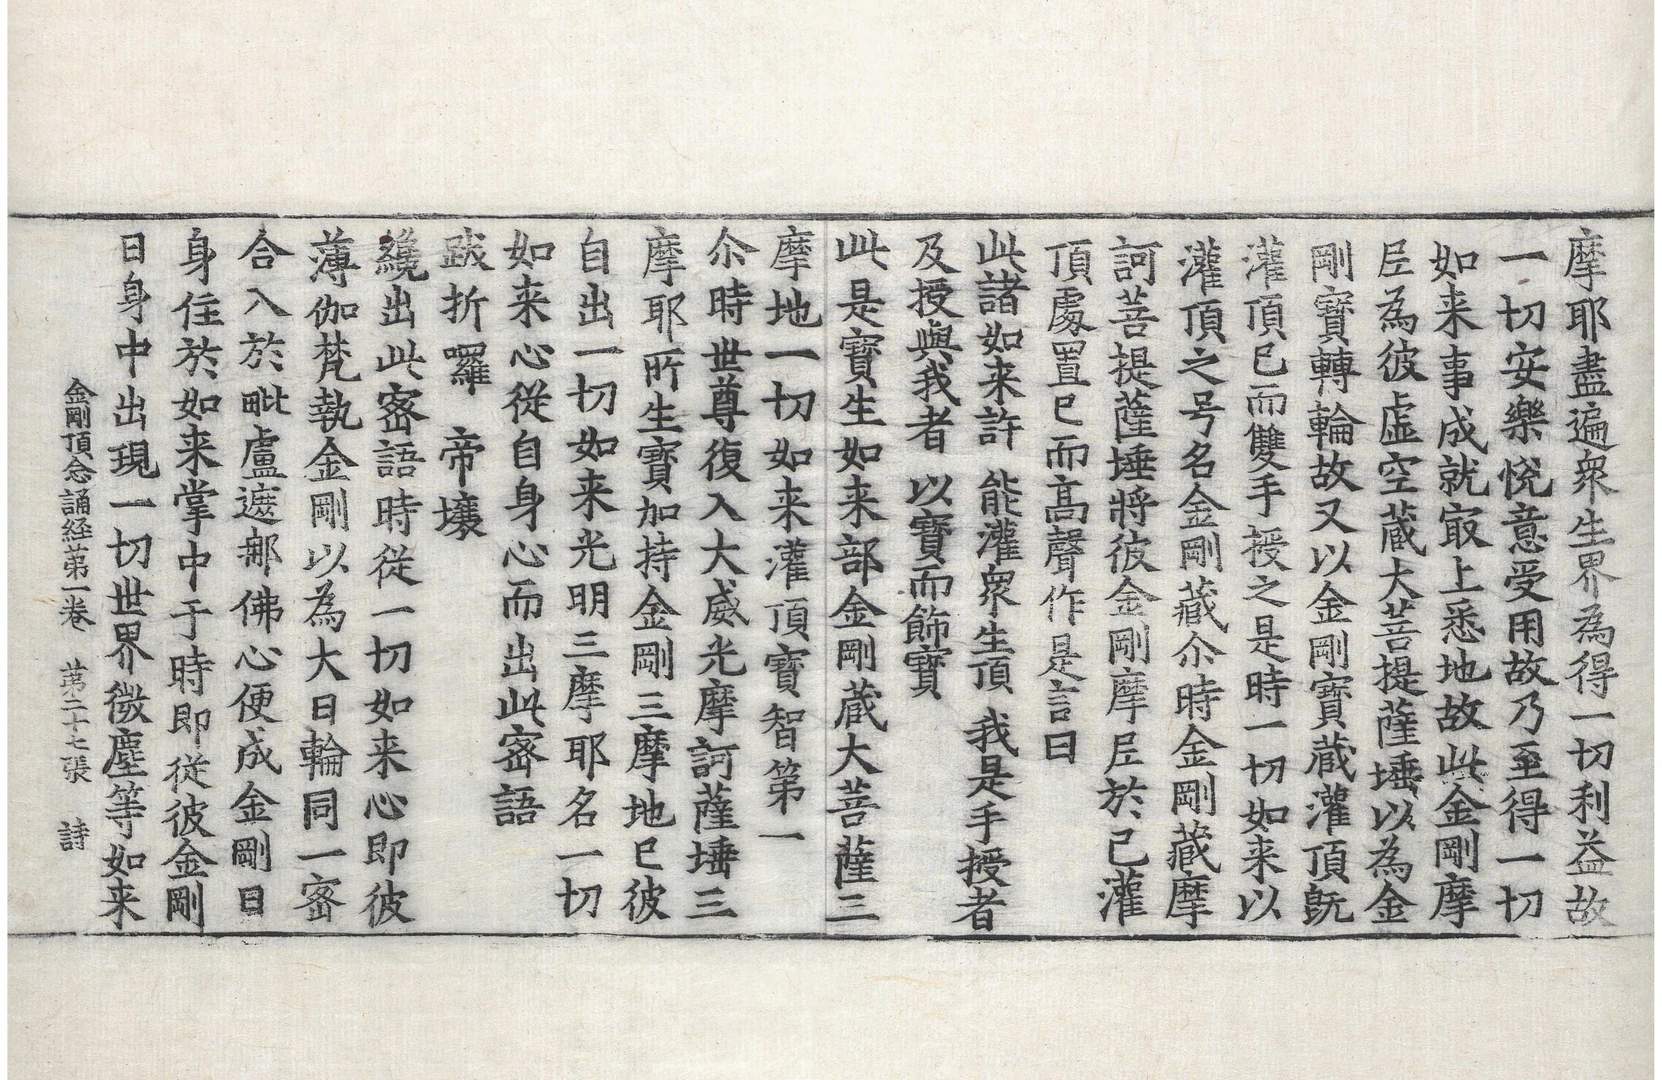 摩耶盡遍衆生界為得一切利益故
一切安樂悅意受用故乃至得一切
如来事成就㝡上悉地故此金剛摩
尼為彼虛空蔵大菩提薩埵以為金
剛寶轉輪故又以金剛寶蔵灌頂旣
灌頂已而雙手授之是時一切如来以
灌頂之号名金剛蔵尒時金剛蔵摩
訶菩提薩埵將彼金剛摩尼於已灌
頂處置已而高聲作是言曰
此諸如来許 能灌衆生頂 我是手授者
及授與我者 以寶而飾寶
此是寶生如来部金剛蔵大菩薩三
摩地一切如来灌頂寶智第一
尒時世尊復入大威光摩訶薩埵三
摩耶所生寶加持金剛三摩地已彼
自出一切如来光明三摩耶名一切
如来心従自身心而出此宻語
跋折囉 帝壤
纔出此宻語時從一切如来心即彼
薄伽梵執金剛以為大日輪同一宻
合入於毗盧遮那佛心便成金剛日
身住於如来掌中于時即従彼金剛
日身中出現一切世界微塵等如来
金剛頂念誦経第一卷 第二十七張 詩